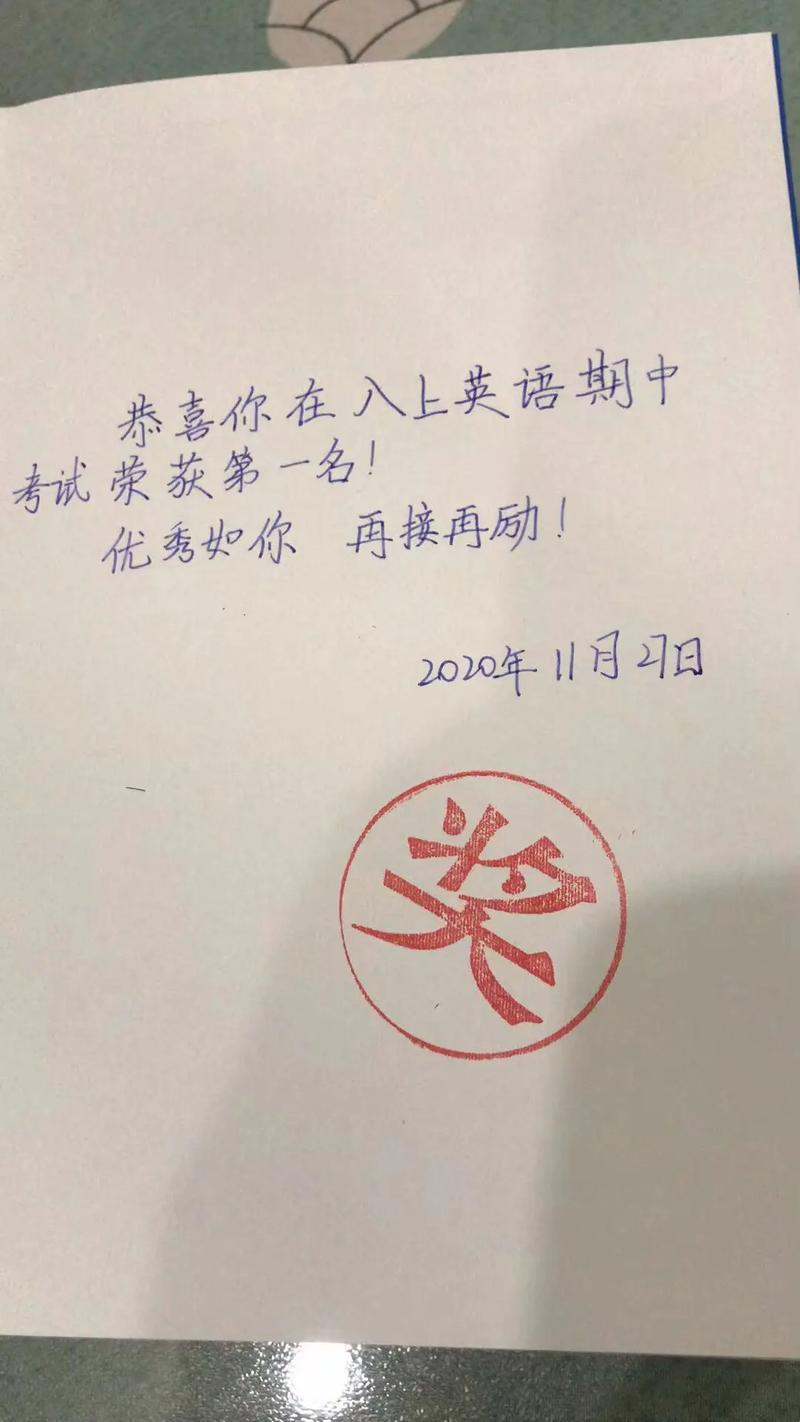 恭喜你在八上英语期中
考试荣获第一名!
优秀如你 再接再励!
2020年11月27日
奖